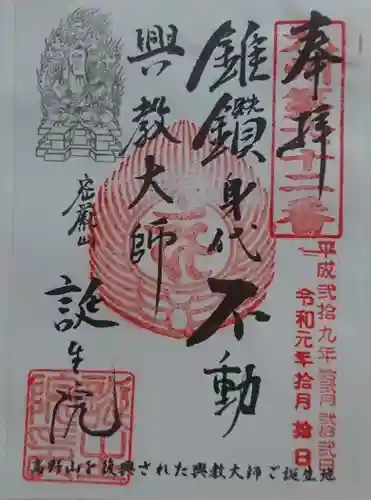 奉拝
錐鑽身代不動
興教大師
密嚴山
誕生院
平成弐拾九年
令和元年拾月拾日
高野山を復興された興教大師ご誕生地